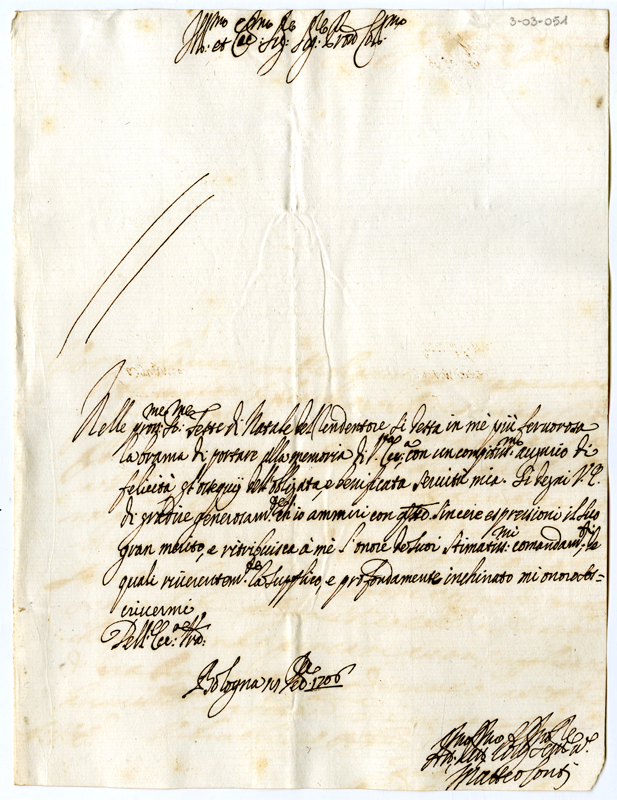 3-03-051
Ill.mo et Ecc.mo Sig.re Sig.re P.ron Col.mo
Nelle pros.me S.me Feste di Natale dell Redentore si desta in mè più feruorosa
la brama di portare alla memoria di V.ra Ecc.a con un compitiss.mo augurio di
felicità gl'ossequij dell'obligata, e benificata seruitù mia. Si degni V. E.
di gradire generosam.te ch'io ammiri con queste sincere espressioni il suo
gran merito, e ritribuisca à mè l'onore de suoi stimatiss.mi comandam.ti de
quali riuerentem.te la supplico, e profondamente inchinato mi onoro sos=
criuermi
Dell'Ecc.a V.ra
Bologna Xbre 1706
Matteo Conti